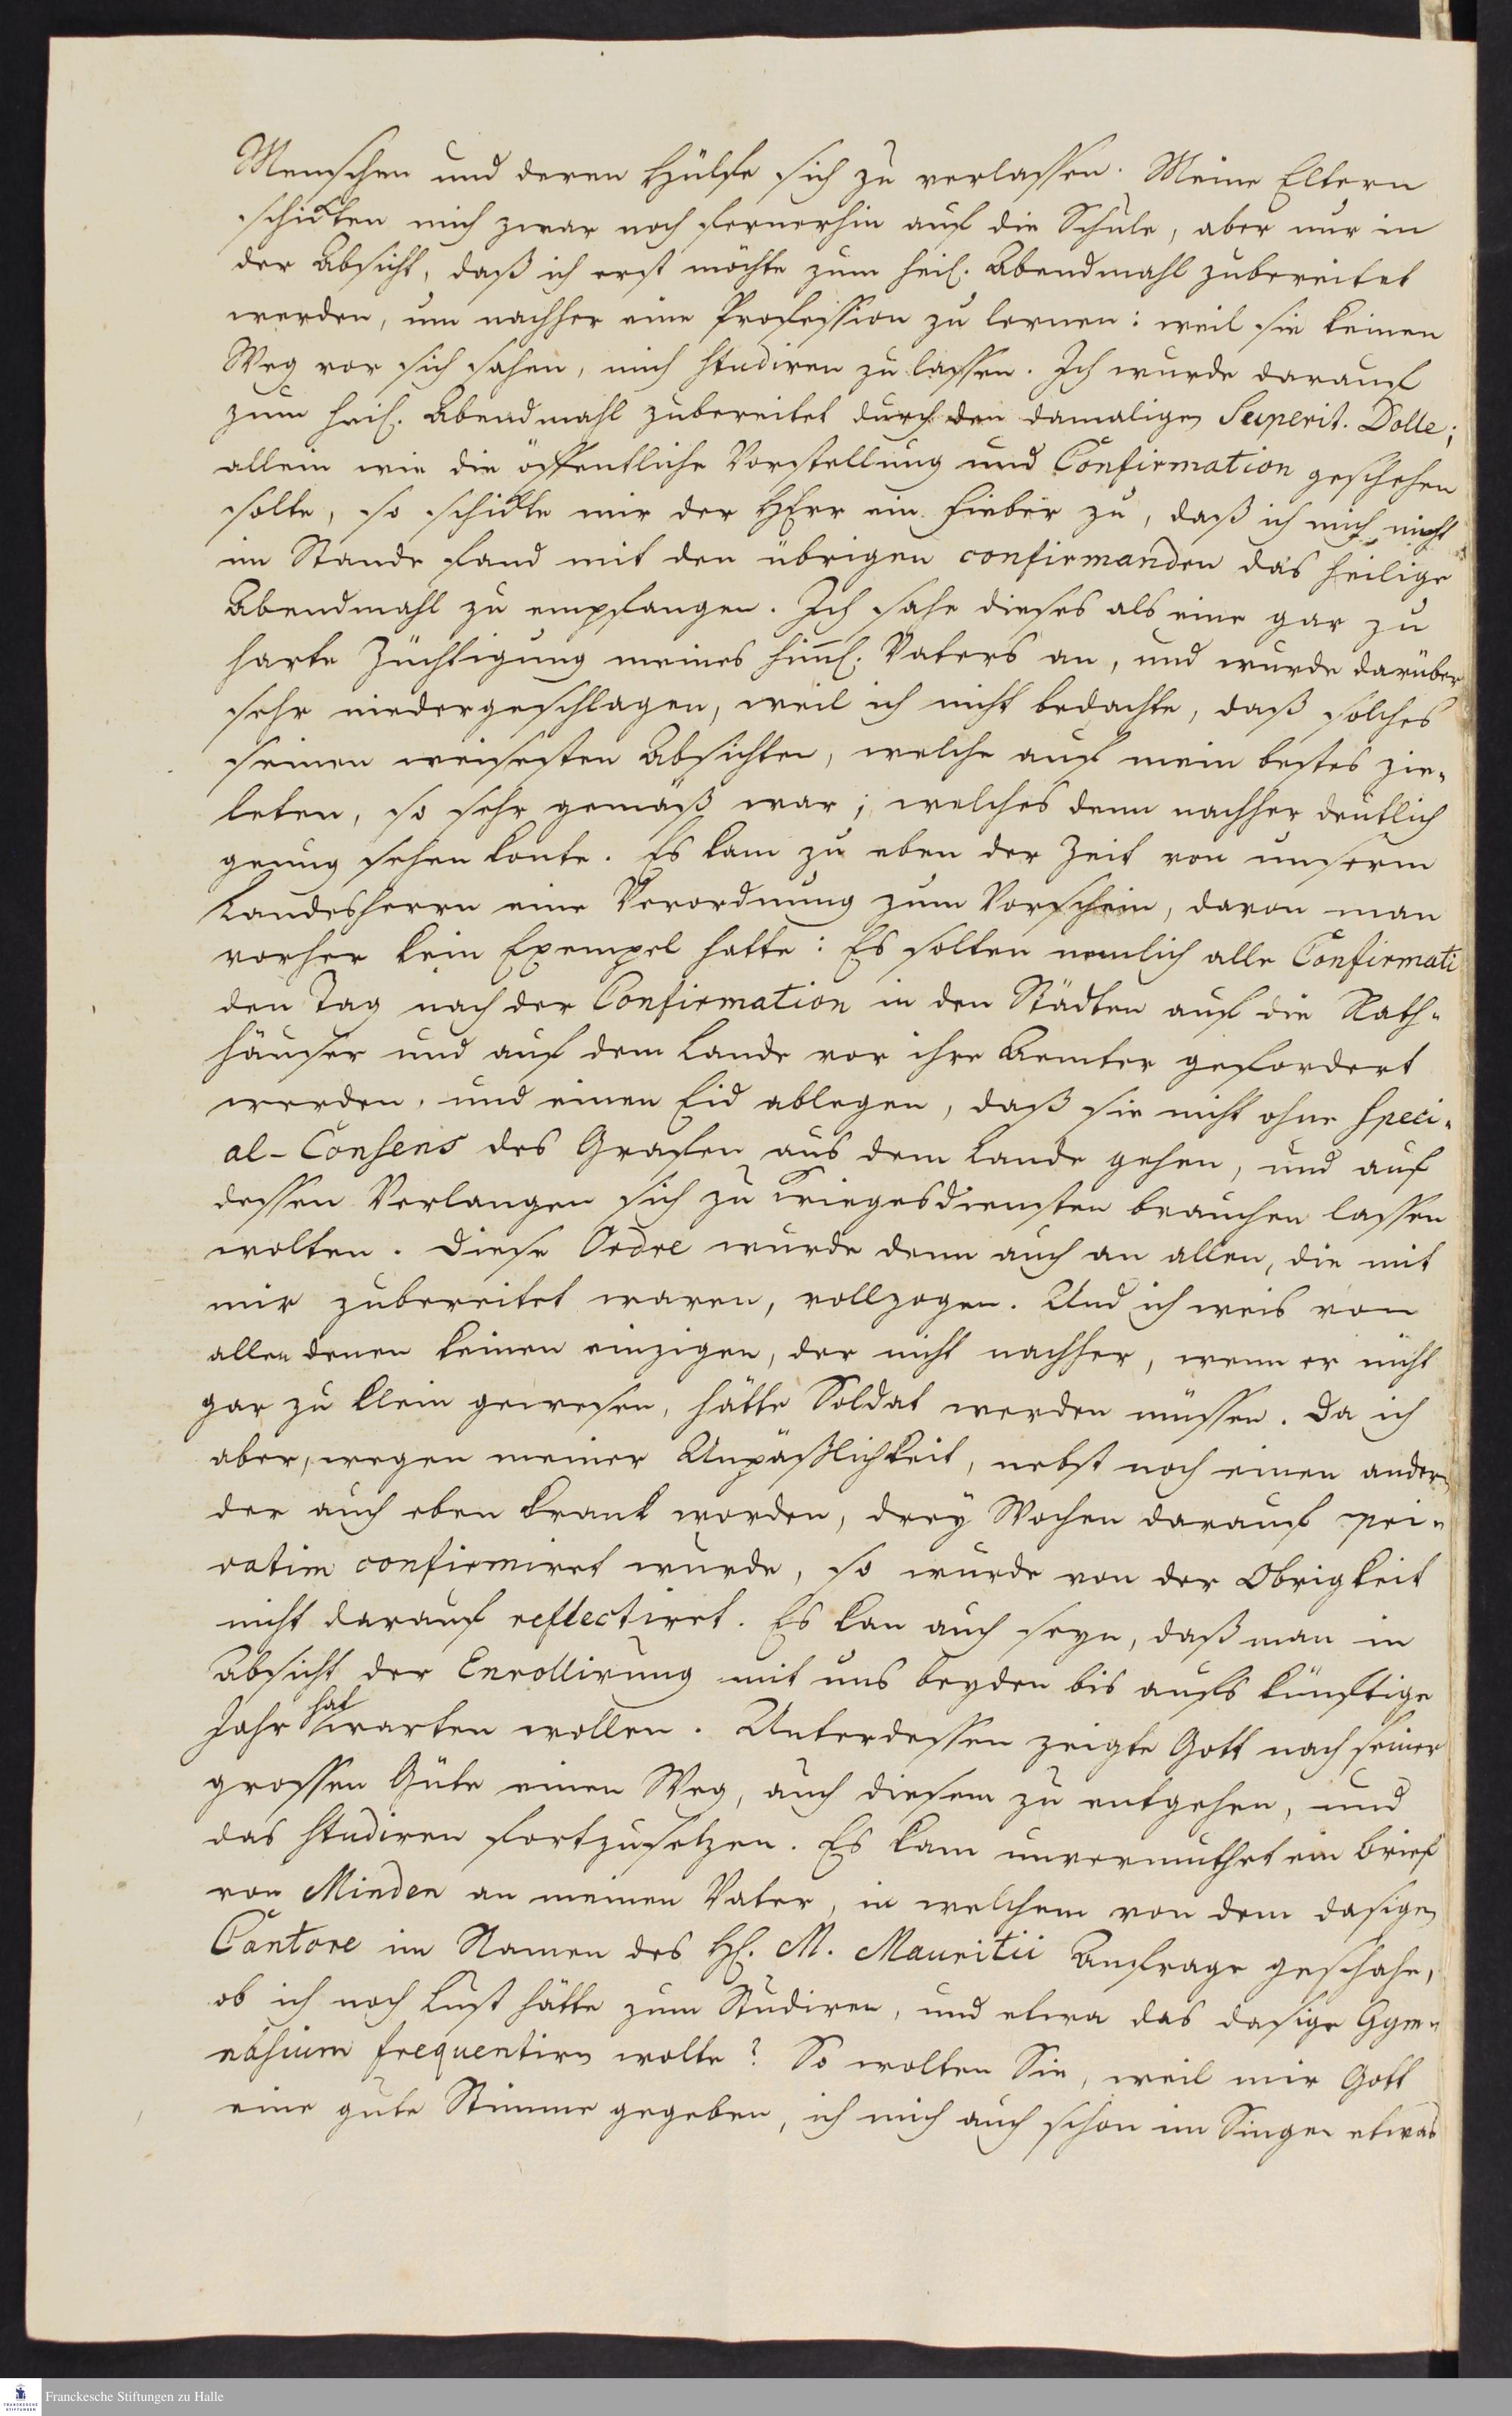 Menschen und deren Hülfe sich zu verlassen. Meine Eltern
schickten mich zwar noch fernerhin auf die Schule, aber nur in
der Absicht, daß ich erst möchte zum heil. Abendmahl zubereitet
werden, um nachher eine Profession zu lernen: weil sie keinen
Weg vor sich sahen, mich studiren zu lassen. Ich wurde darauf
zum heil. Abendmahl zubereitet durch den damaligen Superit. Dolle;
allein wie die öffentliche Vorstellung und Confirmation geschehen
solte, so schickte mir der HErr ein Fieber zu, daß ich mich nicht
im Stande fand mit den übrigen confirmanden das heilige
Abendmahl zu empfangen. Ich sahe dieses als eine gar zu
harte Züchtigung meines himml. Vaters an, und wurde darüber
sehr niedergeschlagen, weil ich nicht bedachte, daß solches
seinen weisesten Absichten, welche auf mein bestes zie-
leten, so sehr gemäß war; welches denn nachher deutlich
genung sehen konte. Es kam zu eben der Zeit von unserm
Landesherrn eine Verordnung zum Vorschein, davon man
vorher kein Exempel hatte: Es solten nemlich alle Confirmati
den Tag nach der Confirmation in den Städten auf die Rath-
häuser und auf dem Lande vor ihre Aemter gefordert
werden, und einen Eid ablegen, daß sie nicht ohne speci-
al-Consens des Grafen aus dem Lande gehen, und auf
dessen Verlangen sich zu Kriegesdiensten brauchen lassen
wolten. Diese Ordre wurde denn auch an allen, die mit
mir zubereitet waren, vollzogen. Und ich weis von
allen denen keinen einzigen, der nicht nachher, wenn er nicht
gar zu klein gewesen, hätte Soldat werden müssen. Da ich
aber, wegen meiner Unpäßlichkeit, nebst noch einen andern
der auch eben krank worden, drey Wochen darauf pri-
vatim confirmiret wurde, so wurde von der Obrigkeit
nicht darauf reflectiret. Es kan auch seyn, daß man in
Absicht der Enrollirung mit uns beyden bis aufs künftige
Jahr hat warten wollen. Unterdessen zeigte Gott nach seiner
grossen Güte einen Weg, auch diesem zu entgehen, und
das studiren fortzusetzen. Es kam unvermuthet ein Brief
von Minden an meinen Vater, in welchem von dem dasigen
Cantore im Namen des H. M. Mauritii Anfrage geschahe,
ob ich noch Lust hätte zum Studiren, und etwa das dasige Gym-
nasium frequentiren wolte? So wolten Sie, weil mir Gott
eine gute Stimme gegeben, ich mich auch schon im Singen etwas
Franckesche Stiftungen zu Halle